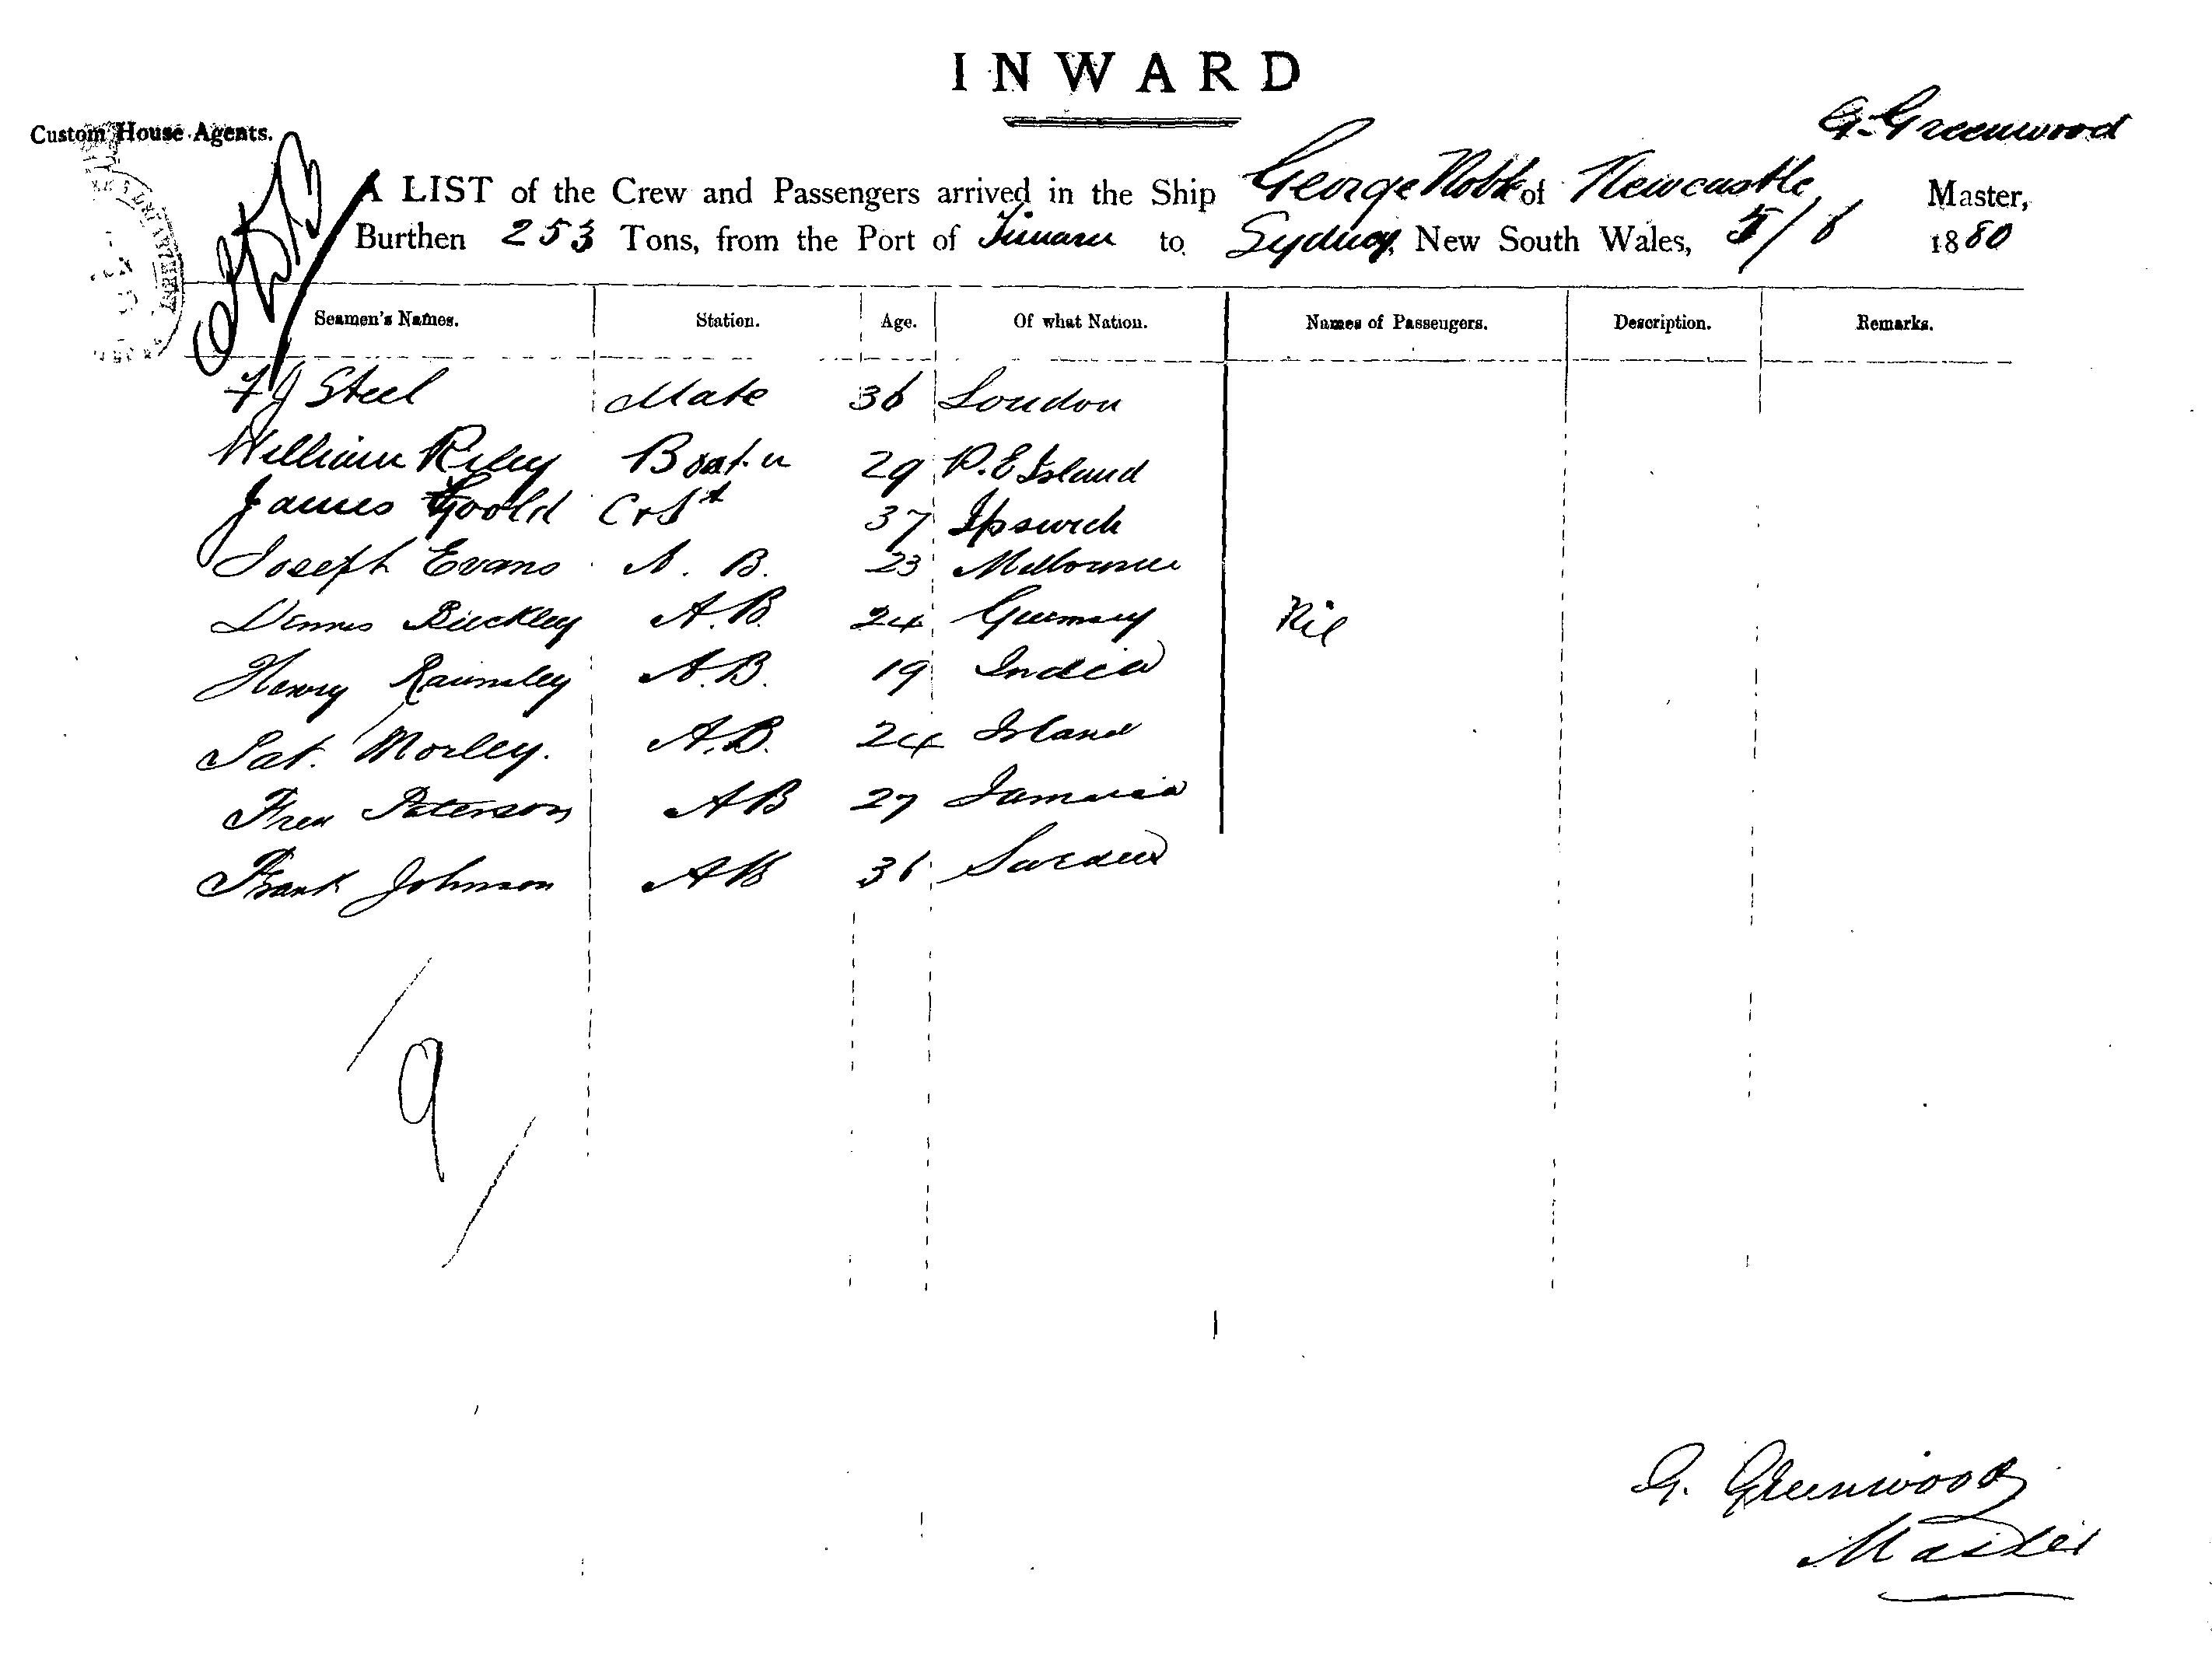 INWARD
Custom House Agents.
G. Greenwood
A LIST of the Crew and Passengers arrived in the Ship George Noble of Newcastle Master,
Burthen 253 Tons, from the Port of Timaru to Sydney, New South Wales, 5/6 1880
Seamen's Names. Station. Age. Of what Nation. Names of Passengers. Description. Remarks.
F J Steel Mate 36 London
William Riley Boats'n 29 P. E Island
James Goold C & St 37 Ipswich
Joseph Evans A. B. 23 Melbourne
Dennis Buckley A. B. 24 Guernsey Nil
Henry Raumsley A. B. 19 India
Pat. Morley. A. B. 24 Island
Fred Paterson A B 27 Jamaica
Frank Johnson A B 36
9
G. Greenwood
Master